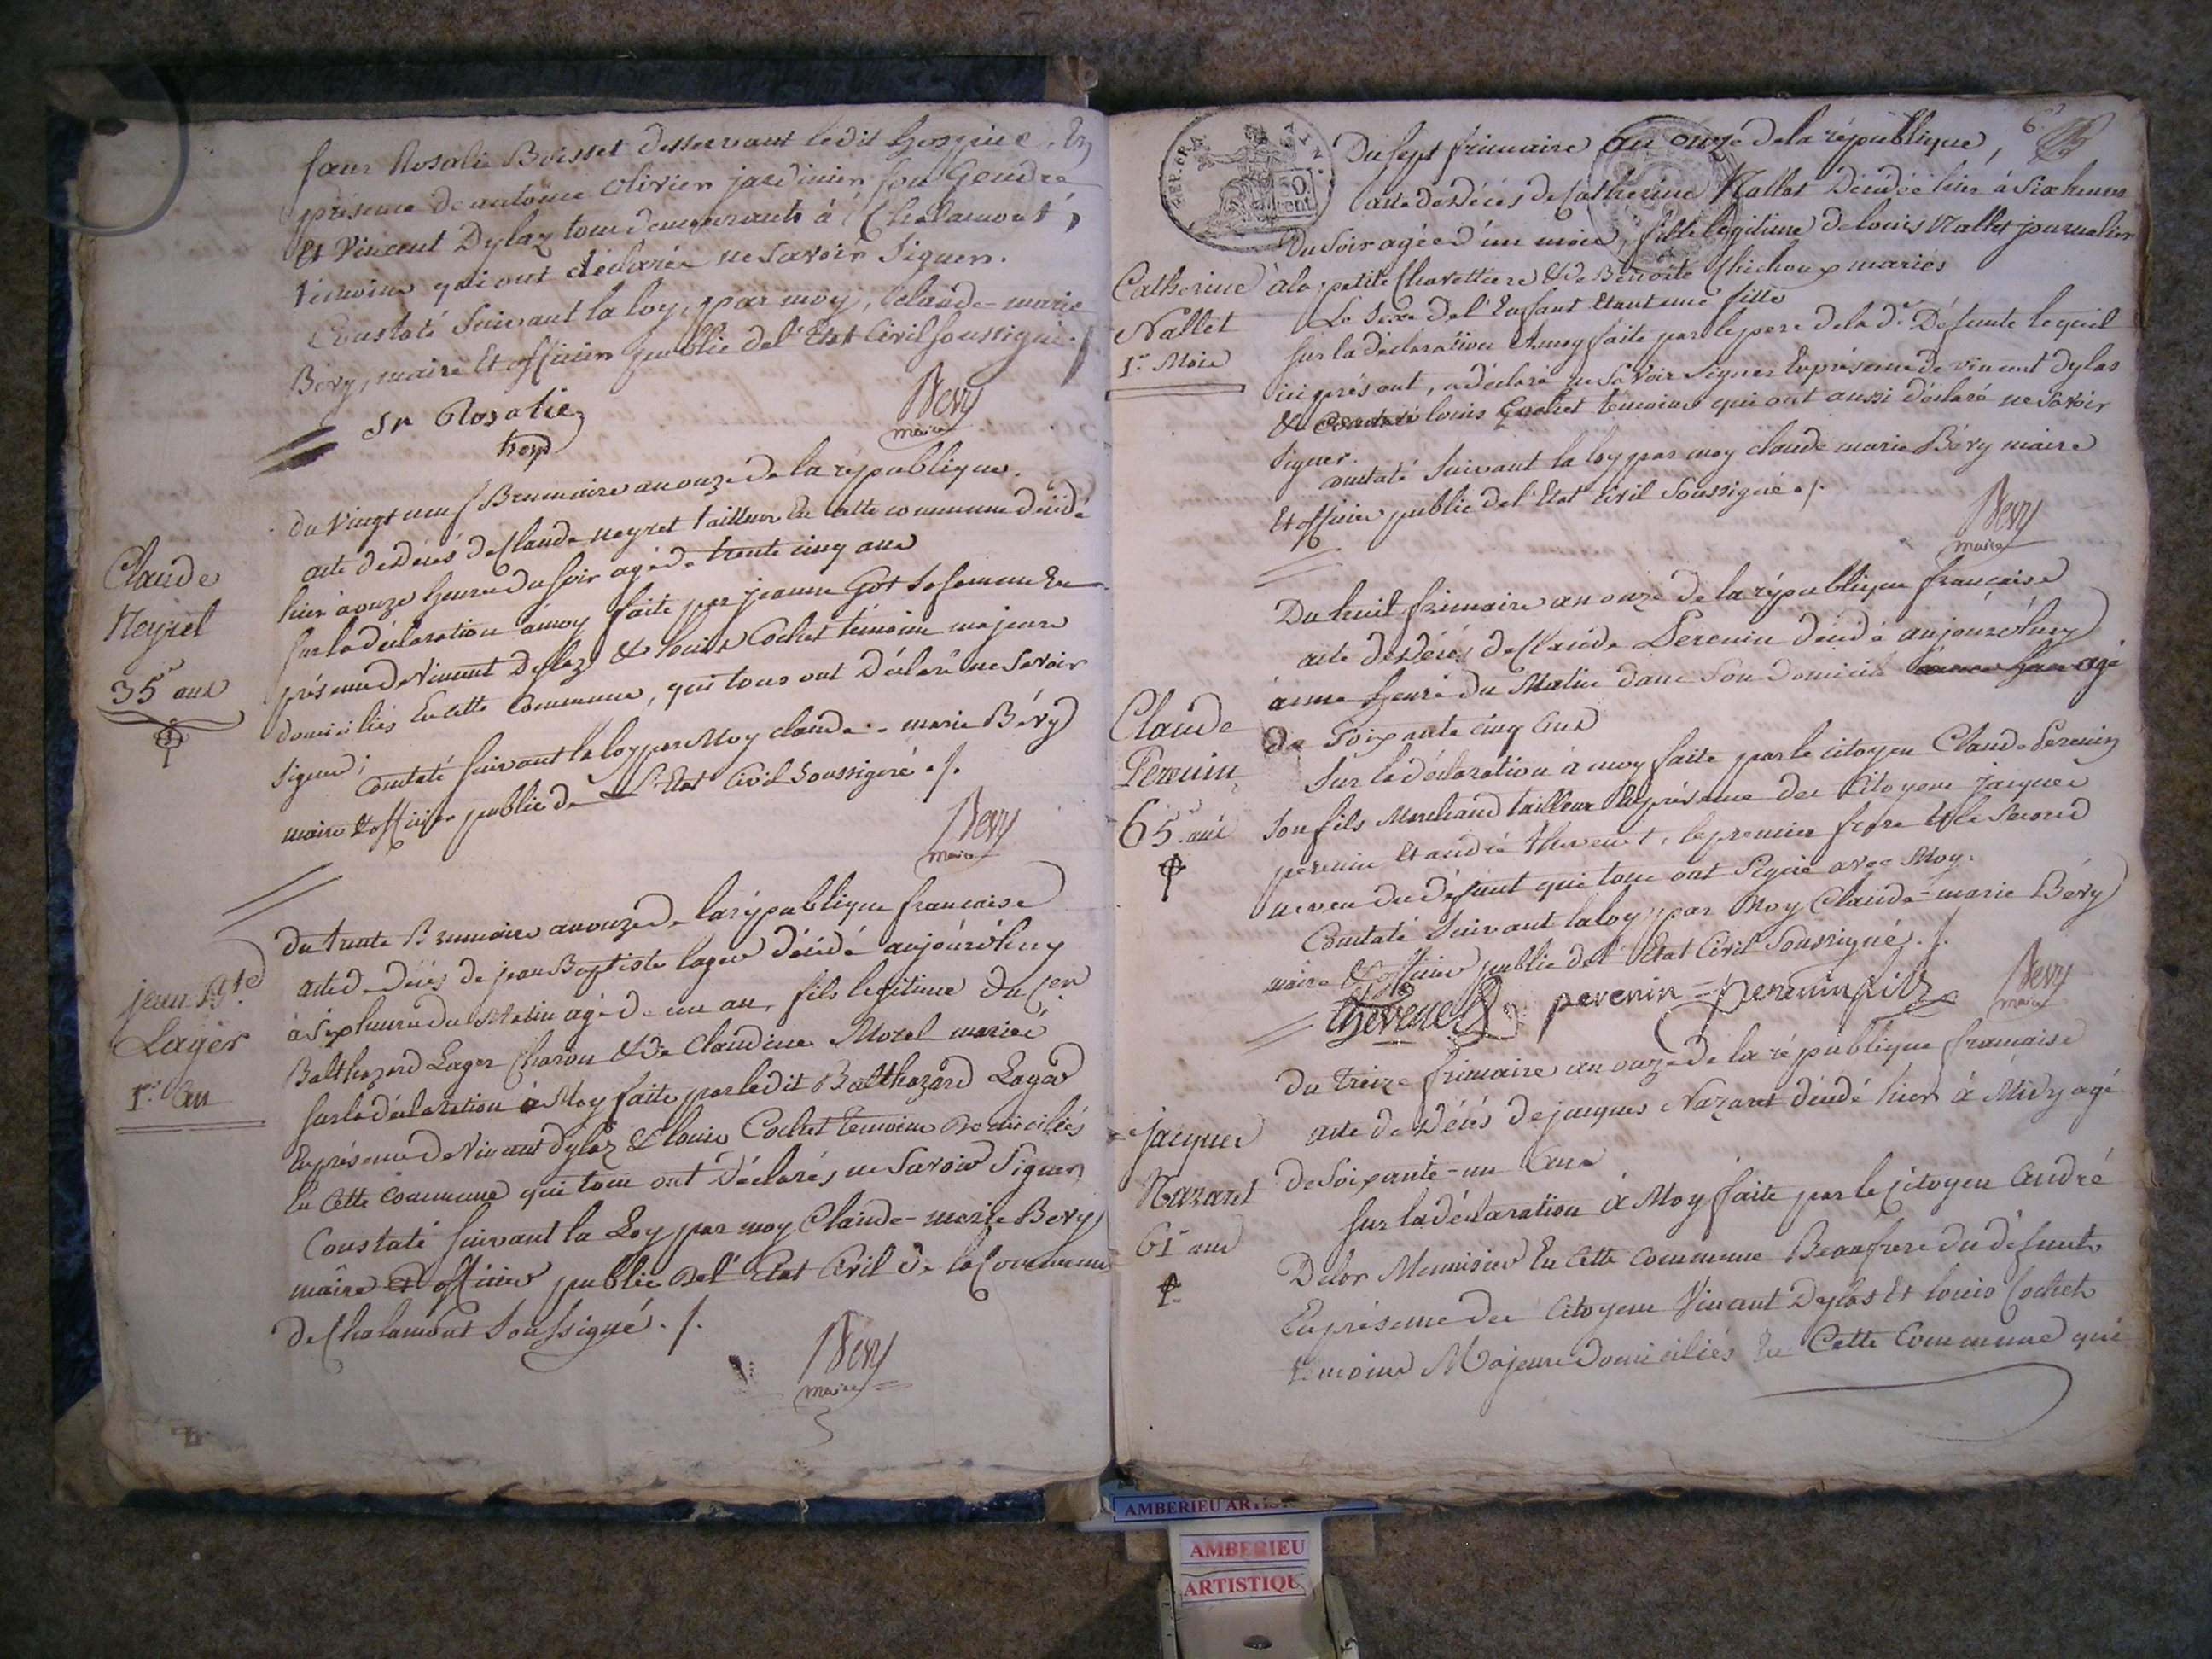 sœur Rosalie Boisset desservant ledit hospice. En
présence de antoine Olivier jardinier son Gendre
Et Vincent Dylaz tous demeurants à Chalamont,
témoins qui ont déclarés ne Savoir Signer.
Constaté Suivant la loy, par moy, Claude-marie
Bévy, maire Et officier public de l'Etat Civil soussigné ./.
Sr Rosalie
hosp
Bevy
maire
Claude
Neyret
35 ans
du Vingt neuf Brumaire an onze de la république.
acte de Décés de Claude neyret tailleur En cette commune décédé
hier à onze heures du Soir agé de trente cinq ans
sur la déclaration à moy faite par jeanne Got Sa femme En
présence de Vincent Dylaz & louis Cochet témoins majeurs
domiciliés En cette Commune, qui tous ont Déclaré ne Savoir
Signer;
Constaté Suivant la loy par Moy claude-marie Bévy
maire & officier public de L'Etat Civil Soussigné ./.
Bevy
maire
jean Bte
Lager
1r. An
du trente Brumaire an onze de la république française
acte de Décés de jean Baptiste lager décédé aujourd'huy
à Six heures du Matin agé de un an, fils legitime du Cen
Balthazard Lager Charon & de Claudine Morel mariés
sur la déclaration à Moy faite par ledit Balthazard Lager
En présence de Vincent dylaz & louis Cochet témoins Domiciliés
En Cette Commune qui tous ont Déclarés ne Savoir Signer
Constaté Suivant la Loy par moy Claude-marie Bevy
maire Et officier public de l'Etat Civil de la Commune
de Chalamont Soussigné ./.
Bevy
maire
REP. FRA.
50
cent
6
Du Sept frimaire an onze de la république,
acte de Décés de Catherine Nallet Décédée hier à Six heures
du Soir agée d'un mois, fille legitime de louis Nallet journalier
Catherine
Nallet
1r. Mois
à la petite Charettiere & de Benoite Chichoux mariés
Le Sexe de l'Enfant Etant une fille
sur la déclaration à moy faite par le pere de la de. Défunte lequel
ici présent, a déclaré ne Savoir Signer En présence de vincent dylas
& louis Cochet témoins qui ont aussi déclaré ne Savoir
Signer.
Constaté Suivant la loy par moy claude marie Bévy maire
Et officier public de l'Etat Civil Soussigné ./.
Bevy
maire
Claude
Perenin
65 ans
Du huit frimaire an onze de la république française
acte de Décés de Claude Perenin décédé aujourd'huy
à une heure du Matin dans Son Domicile agé
de Soixante cinq Ans
Sur la déclaration à moy faite par le citoyen Claude Perenin
Son fils Marchand tailleur En présence des Citoyens jacques
perenin Et andré thevenet, le premier frere & le Second
neveu du défunt qui tous ont Signé avec Moy.
Constaté Suivant la loy par Moy Claude-marie Bévy
maire & officier public de l'Etat Civil Soussigné ./.
thevenet perenin perenin fils
Bevy
maire
jacques
Nazaret
61 ans
Du treize frimaire an onze de la république française
acte de Décés de jacques Nazaret décédé hier à Midy agé
de Soixante-un Ans
Sur la déclaration à Moy faite par le Citoyen André
Delor Menuisier En Cette Commune Beaufrere du défunt
En présence des Citoyens Vincent Dylas Et louis Cochet
témoins Majeurs Domiciliés En Cette Commune qui
AMBERIEU ARTIS
AMBERIEU
ARTISTIQU